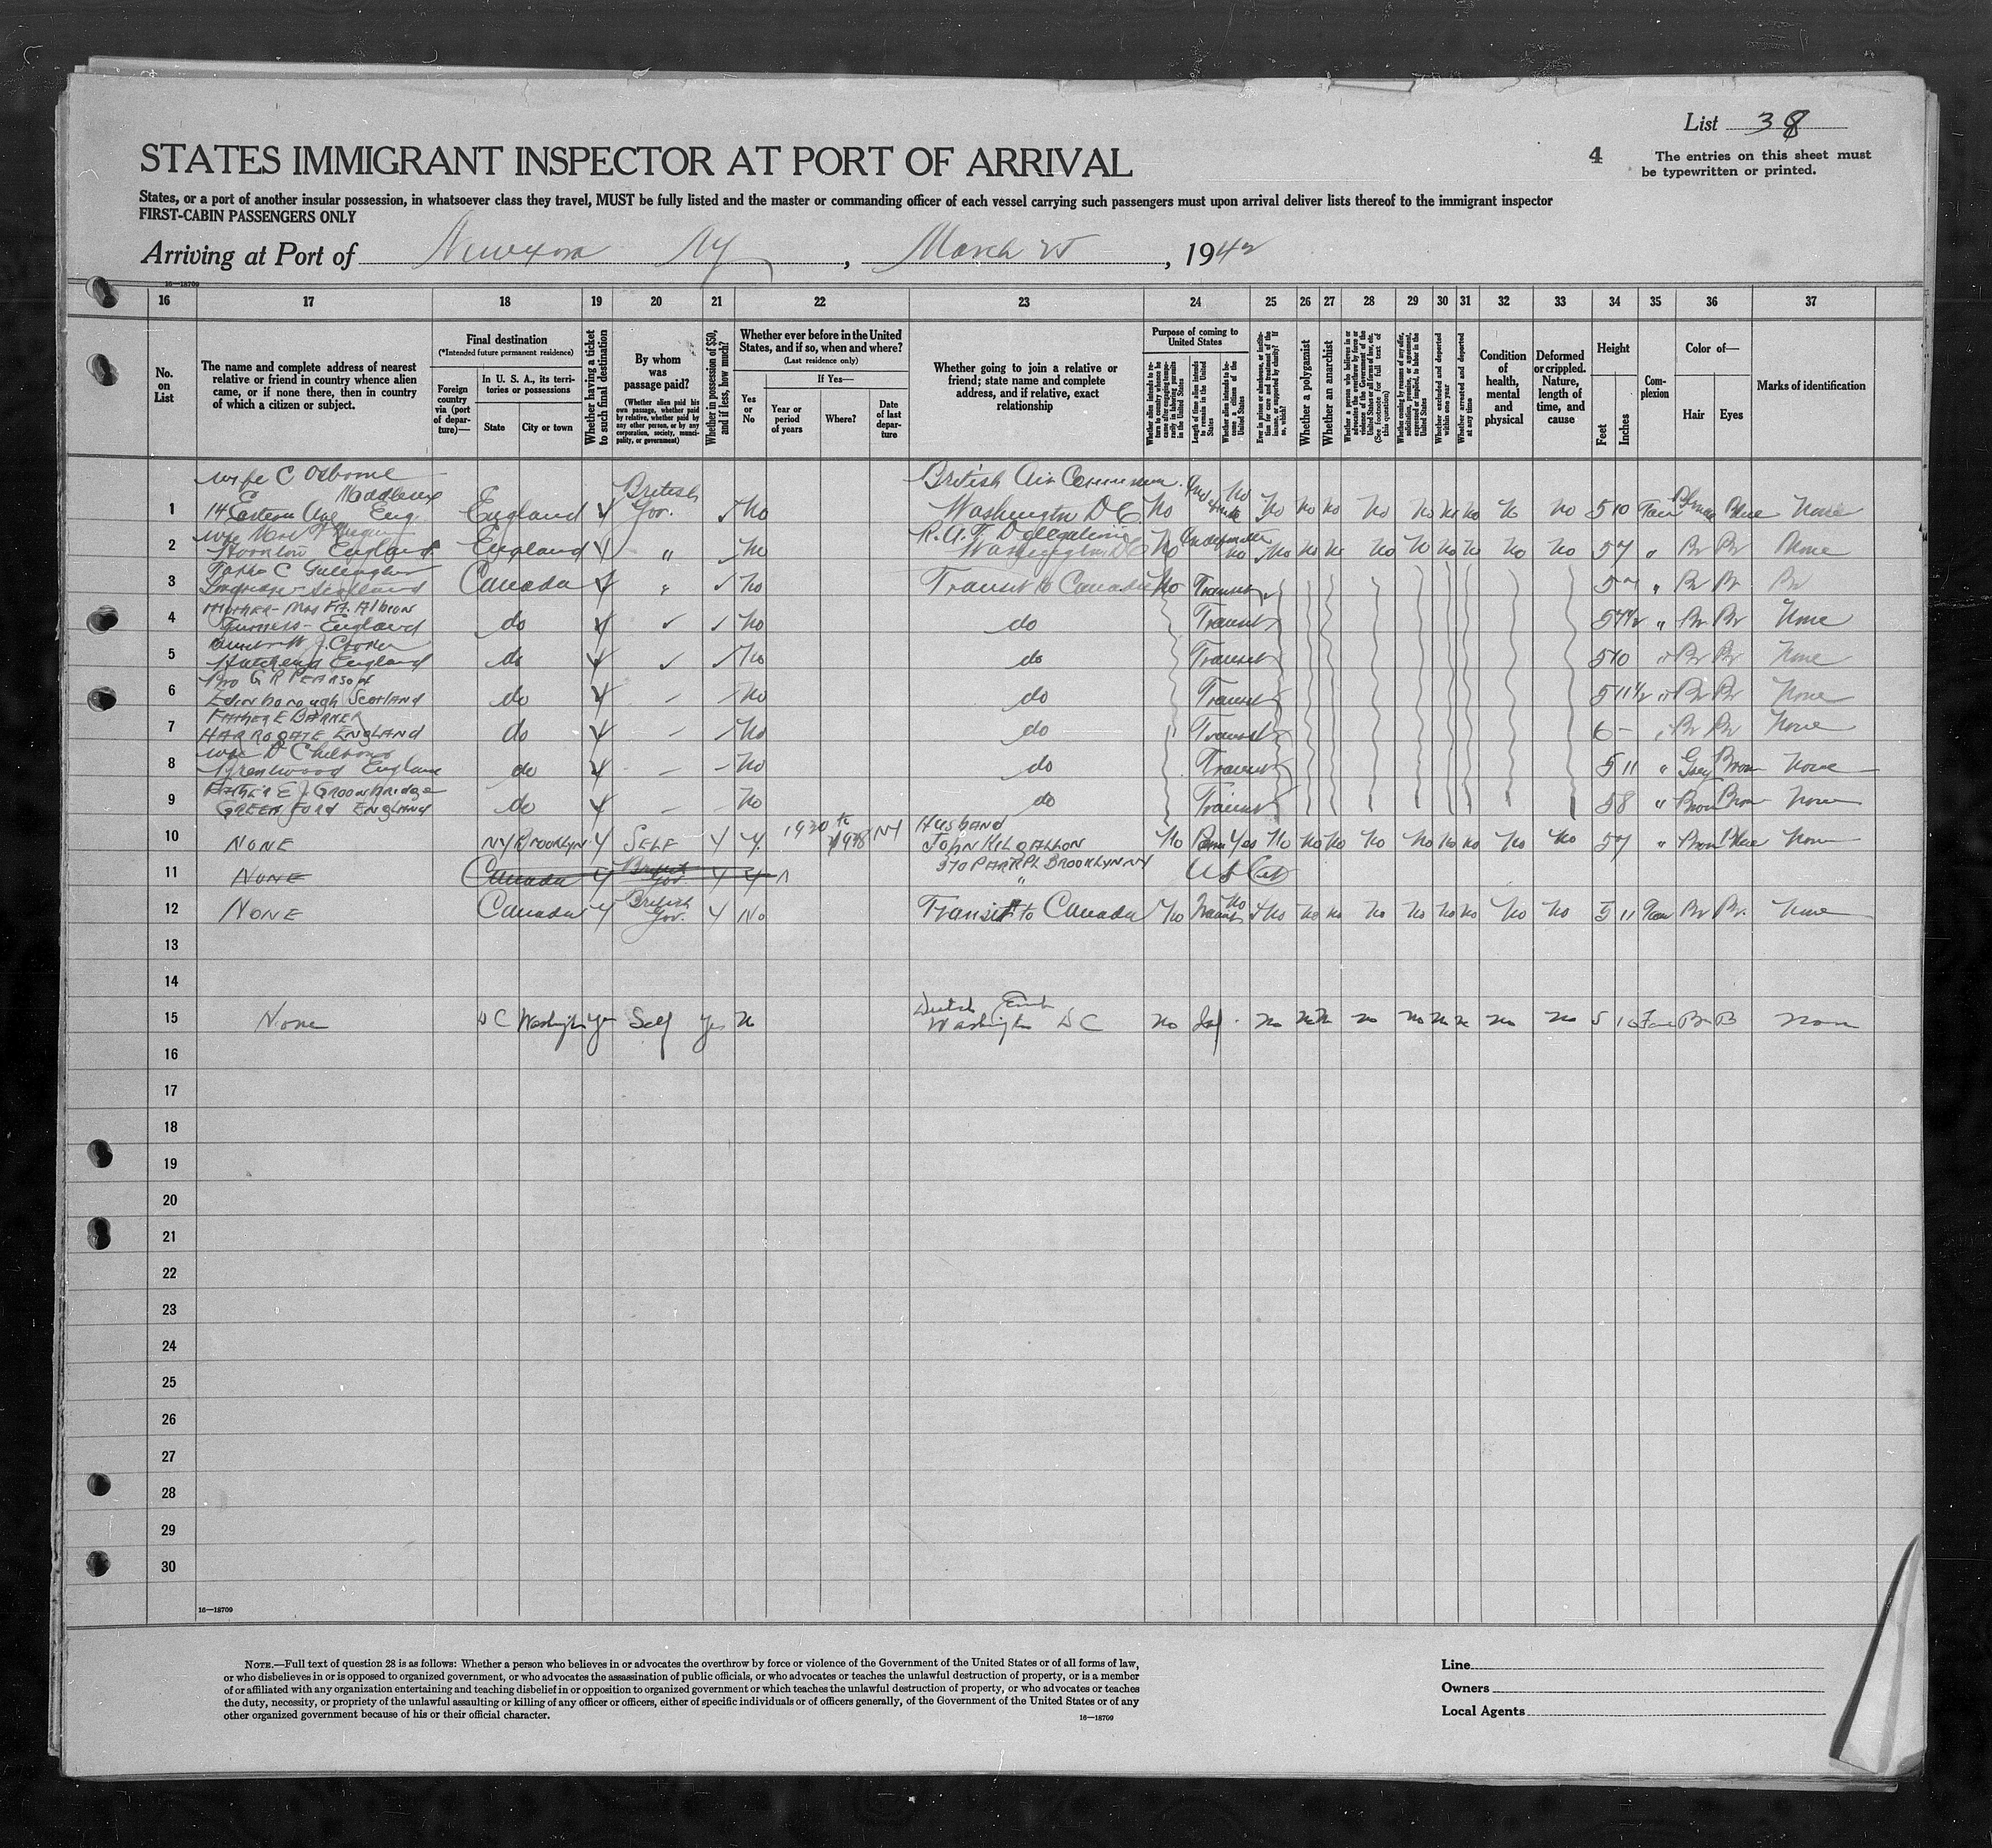 List 38
STATES IMMIGRANT INSPECTOR AT PORT OF ARRIVAL
4
The entries on this sheet must
be typewritten or printed.
States, or a port of another insular possession, in whatsoever class they travel, MUST be fully listed and the master or commanding officer of each vessel carrying such passengers must upon arrival deliver lists thereof to the immigrant inspector
FIRST-CABIN PASSENGERS ONLY
Arriving at Port of Newyork NY , March 25 , 1942
16—18709
16 17 18 19 20 21 22 23 24 25 26 27 28 29 30 31 32 33 34 35 36 37
No. on List
The name and complete address of nearest
relative or friend in country whence alien
came, or if none there, then in country
of which a citizen or subject.
Final destination
(*Intended future permanent residence)
Foreign country via (port of departure)—
In U. S. A., its territories or possessions
State
City or town
Whether having a ticket to such final destination
By whom was passage paid?
(Whether alien paid his own passage, whether paid by relative, whether paid by any other person, or by any corporation, society, municipality, or government)
Whether in possession of $50, and if less, how much?
Whether ever before in the United
States, and if so, when and where?
(Last residence only)
Yes or No
If Yes—
Year or period of years
Where?
Date of last departure
Whether going to join a relative or
friend; state name and complete
address, and if relative, exact
relationship
Purpose of coming to United States
Whether alien intends to return to country whence he came after engaging temporarily in laboring pursuits in the United States
Length of time alien intends to remain in the United States
Whether alien intends to become a citizen of the United States
Ever in prison or almshouse, or institution for care and treatment of the insane, or supported by charity? If so, which?
Whether a polygamist
Whether an anarchist
Whether a person who believes in or advocates the overthrow by force or violence of the Government of the United States or all forms of law, etc. (See footnote for full text of this question)
Whether coming by reason of any offer, solicitation, promise, or agreement, expressed or implied, to labor in the United States
Whether excluded and deported within one year
Whether arrested and deported at any time
Condition of health, mental and physical
Deformed or crippled. Nature, length of time, and cause
Height
Feet
Inches
Complexion
Color of—
Hair
Eyes
Marks of identification
wife C Osborne
Middlesex
1 14 Eastern Ave Eng. England British Gov. No British Air Commission Washington DC No No No No No No No No No No No 5 10 Blue None
2 Hornton England England " No R.A.F Delegation Washington DC No Indefinite No No No No No No No No No No 5 7 " Br Br None
3 C Gallagher Scotland Canada " No Transit to Canada No Transit 5 " Br Br Br
4 Mother - Mrs FA Albion Furness - England do No do Transit 5 " Br Br None
5 J. Cooper England do No do Transit 5 10 " Br Br None
6 Bro G R PEARSON Edinborough SCOTLAND do No do Transit 5 11½ " Br Br None
7 FATHER E BARKER HARROGATE ENGLAND do No do Transit 6 - " Br Br None
8 wife D Brentwood England do No do Transit 5 11 " Grey Brown None
9 FATHER E J GROOMBRIDGE GREENFORD ENGLAND do No do Transit 5 8 " Brown Brown None
10 NONE NY BROOKLYN Y SELF Y Y 1930 to NY HUSBAND JOHN KILGALLON No Perm Yes No No No No No No No No No 5 7 " Brown Blue None
370 PARK PL BROOKLYN NY
11 NONE Canada Y British Gov. Y Y " US Cit
12 NONE Canada Y British Gov. Y No Transit to Canada No Transit No No No No No No No No No No 5 11 Br Br. None
13
14
15 None DC Washington Yes Self Yes No Dutch Washington DC No No No No No No No No No No 5 B None
16
17
18
19
20
21
22
23
24
25
26
27
28
29
30
16—18709
NOTE.—Full text of question 28 is as follows: Whether a person who believes in or advocates the overthrow by force or violence of the Government of the United States or of all forms of law,
or who disbelieves in or is opposed to organized government, or who advocates the assassination of public officials, or who advocates or teaches the unlawful destruction of property, or is a member
of or affiliated with any organization entertaining and teaching disbelief in or opposition to organized government or which teaches the unlawful destruction of property, or who advocates or teaches
the duty, necessity, or propriety of the unlawful assaulting or killing of any officer or officers, either of specific individuals or of officers generally, of the Government of the United States or of any
other organized government because of his or their official character.
16—18709
Line
Owners
Local Agents